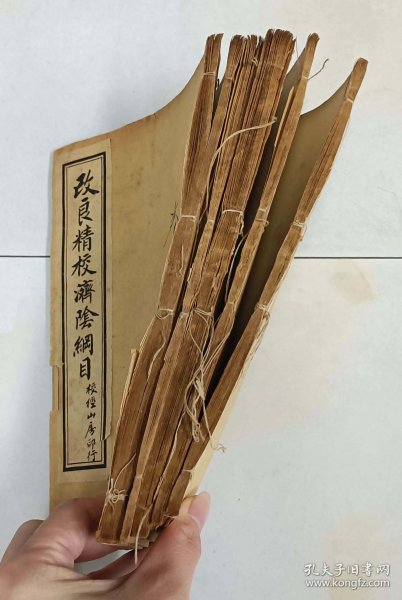 改良精校濟陰綱目
校經山房印行
孔夫子旧书网
www.kongfz.com